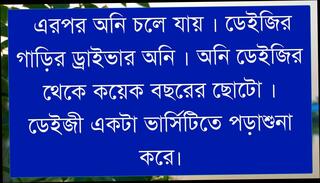 এরপর অনি চলে যায় । ডেইজির
গাড়ির ড্রাইভার অনি । অনি ডেইজির
থেকে কয়েক বছরের ছোটো ।
ডেইজী একটা ভার্সিটিতে পড়াশুনা
করে।